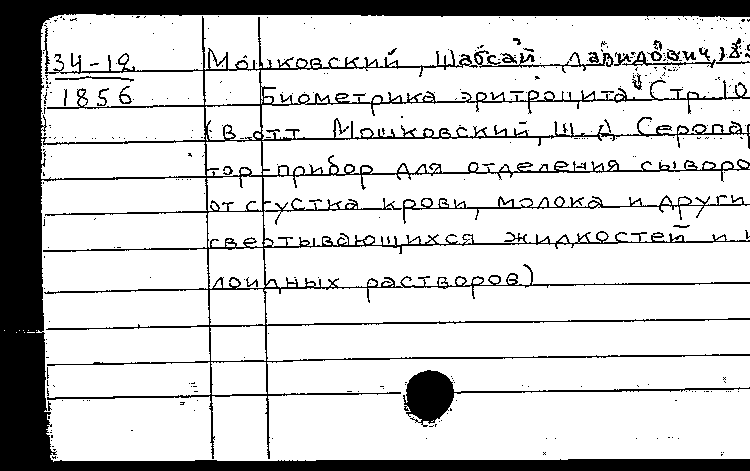 34-12 Мошковский, Шабсай Давидович, 189
1856 Биометрика эритроцита. Стр. 10
(В отт. Мошковский, Ш. Д. Серопар
тор-прибор для отделения сыворо
от сгустка крови, молока и други
свертывающихся жидкостей и к
лоидных растворов)